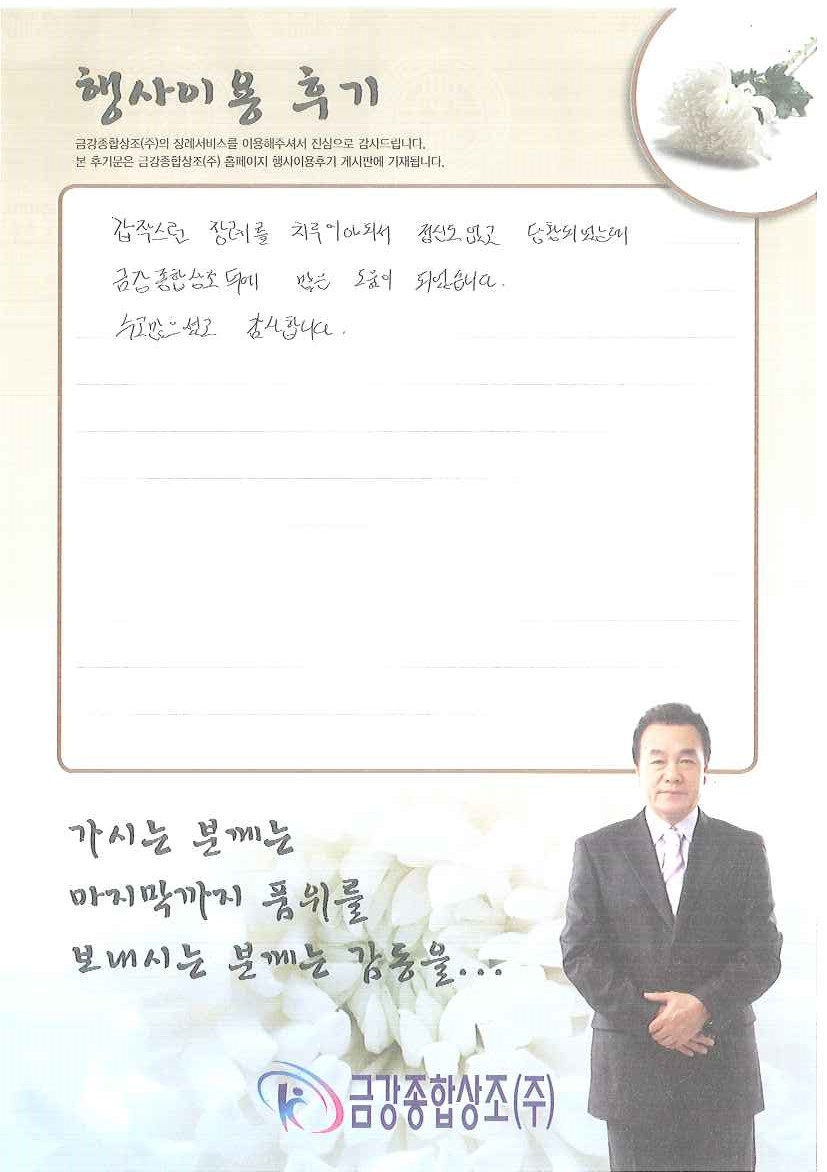 행사이용 후기
금강종합상조(주)의 장례서비스를 이용해주셔서 진심으로 감사드립니다.
본 후기문은 금강종합상조(주) 홈페이지 행사이용후기 게시판에 기재됩니다.
갑작스런 장례를 치루어야되서 정신도 없고 당황되었는데
금강종합상조 덕에 많은 도움이 되었습니다.
수고많으셨고 감사합니다.
가시는 분께는
마지막까지 품위를
보내시는 분께는 감동을...
금강종합상조(주)